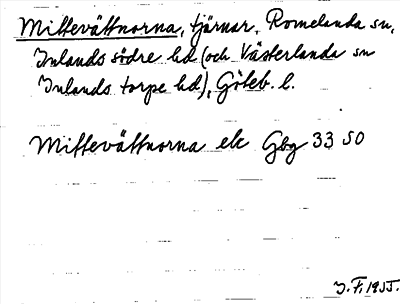 Mittevättnorna, tjärnar, Romelanda sn,
Inlands södre hd (och Västerlanda sn
Inlands torpe hd), Göteb. l.
Mittevättnorna ek Gbg 33 SO
J.F. 1955.